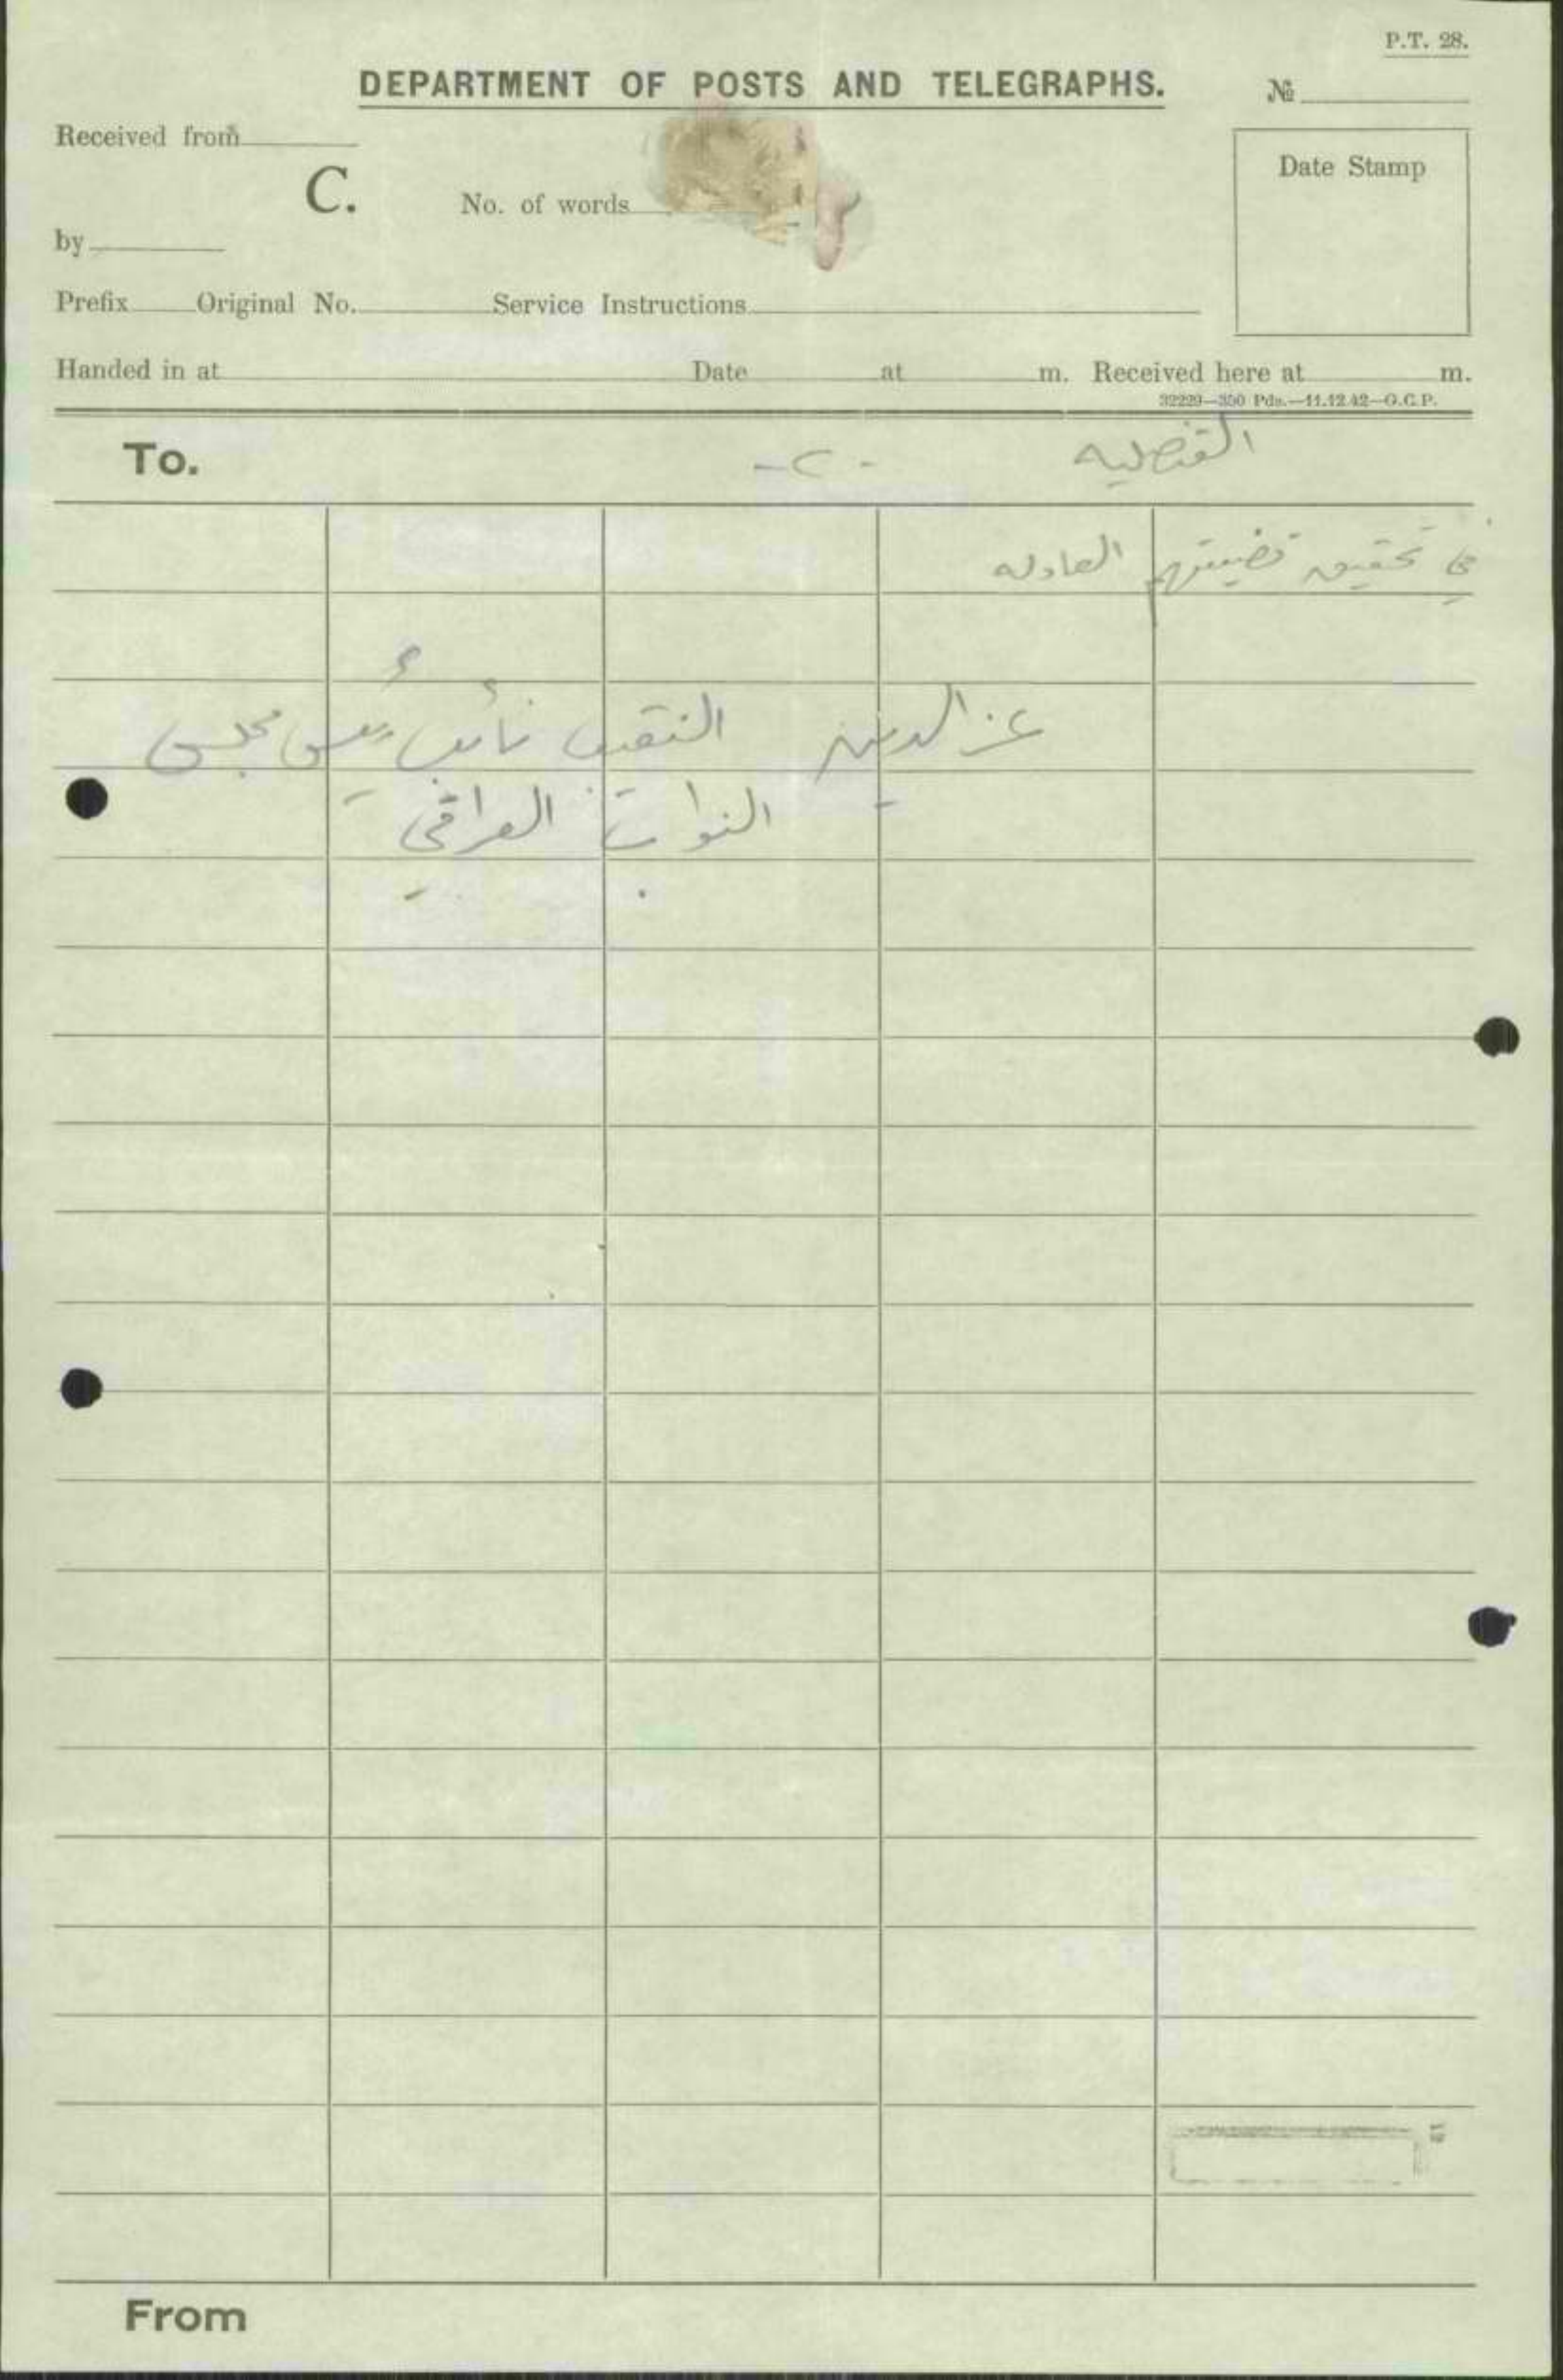 P.T. 28.
DEPARTMENT OF POSTS AND TELEGRAPHS.
№
Received from
Date Stamp
C.
No. of words
by
Prefix Original No. Service Instructions
Handed in at Date at m. Received here at m.
32229—350 Pds.—11.12.42—G.C.P.
To. -٢- القنصليه
في تحقيق قضيتهم العادله
عز الدين النقيب نائب رئيس مجلس
النواب العراقي
From